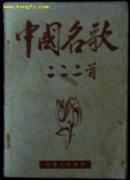 www.kongfz.com
中國名歌
二二二首